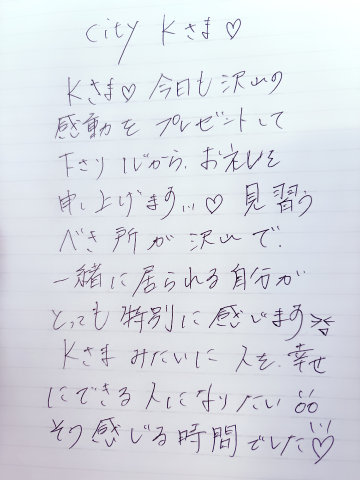 City Kさま♡
Kさま♡ 今日も沢山の
感動を プレゼントして
下さり 心から、お礼を
申し上げます...♡ 見習う
べき所が沢山で、
一緒に居られる自分が
とっても特別に感じます
Kさまみたいに 人を、幸せ
にできる人になりたい
そう感じる時間でした♡